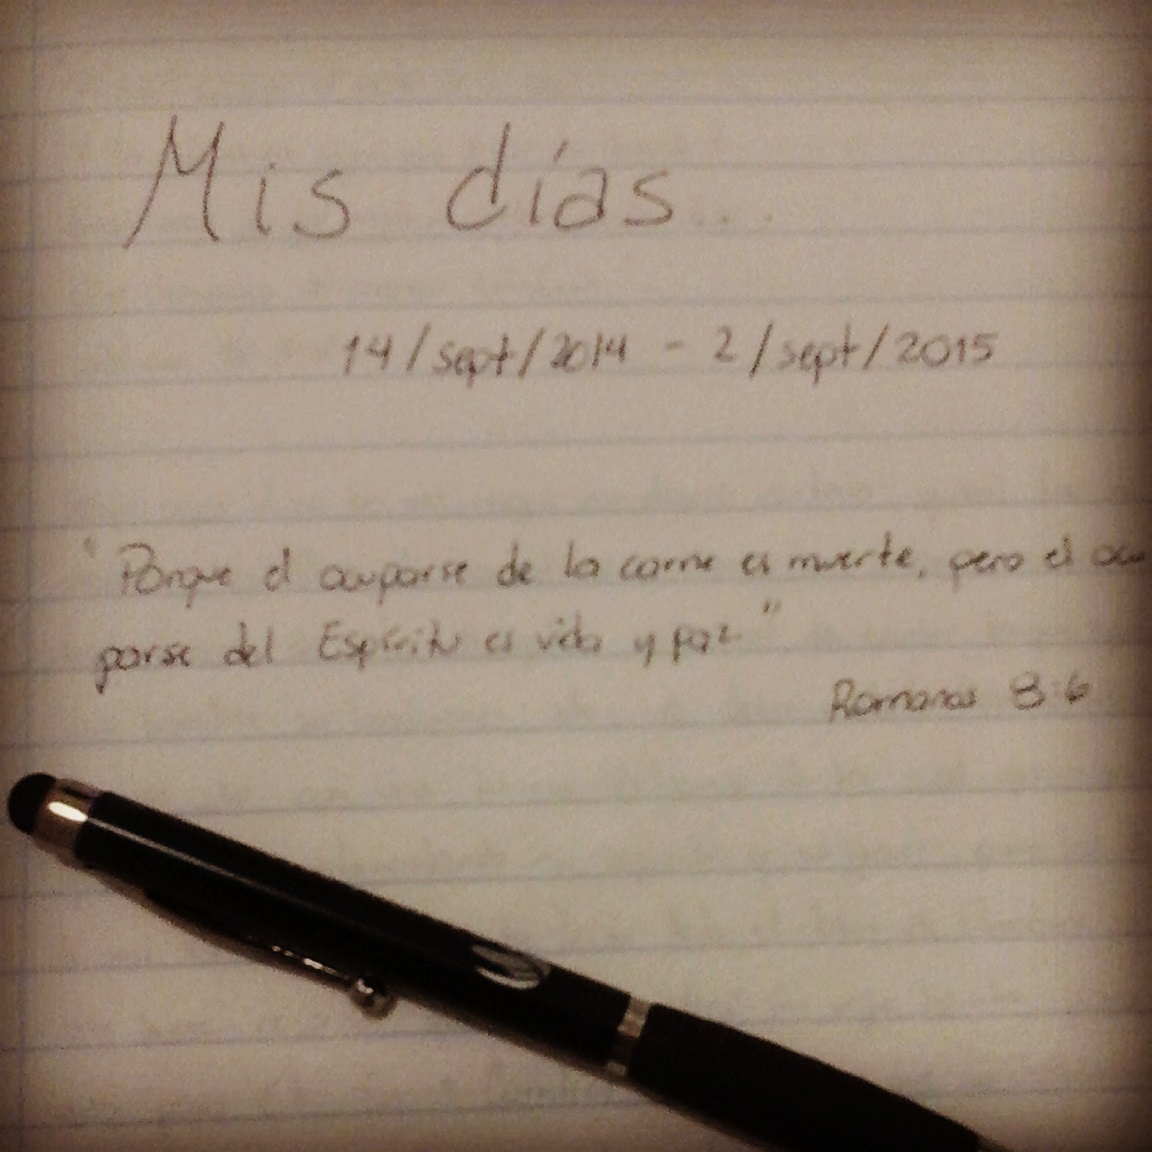 Mis días...
14/sept/2014 - 2/sept/2015
"Porque el ocuparse de la carne es muerte, pero el ocu
parse del Espíritu es vida y paz"
Romanos 8:6